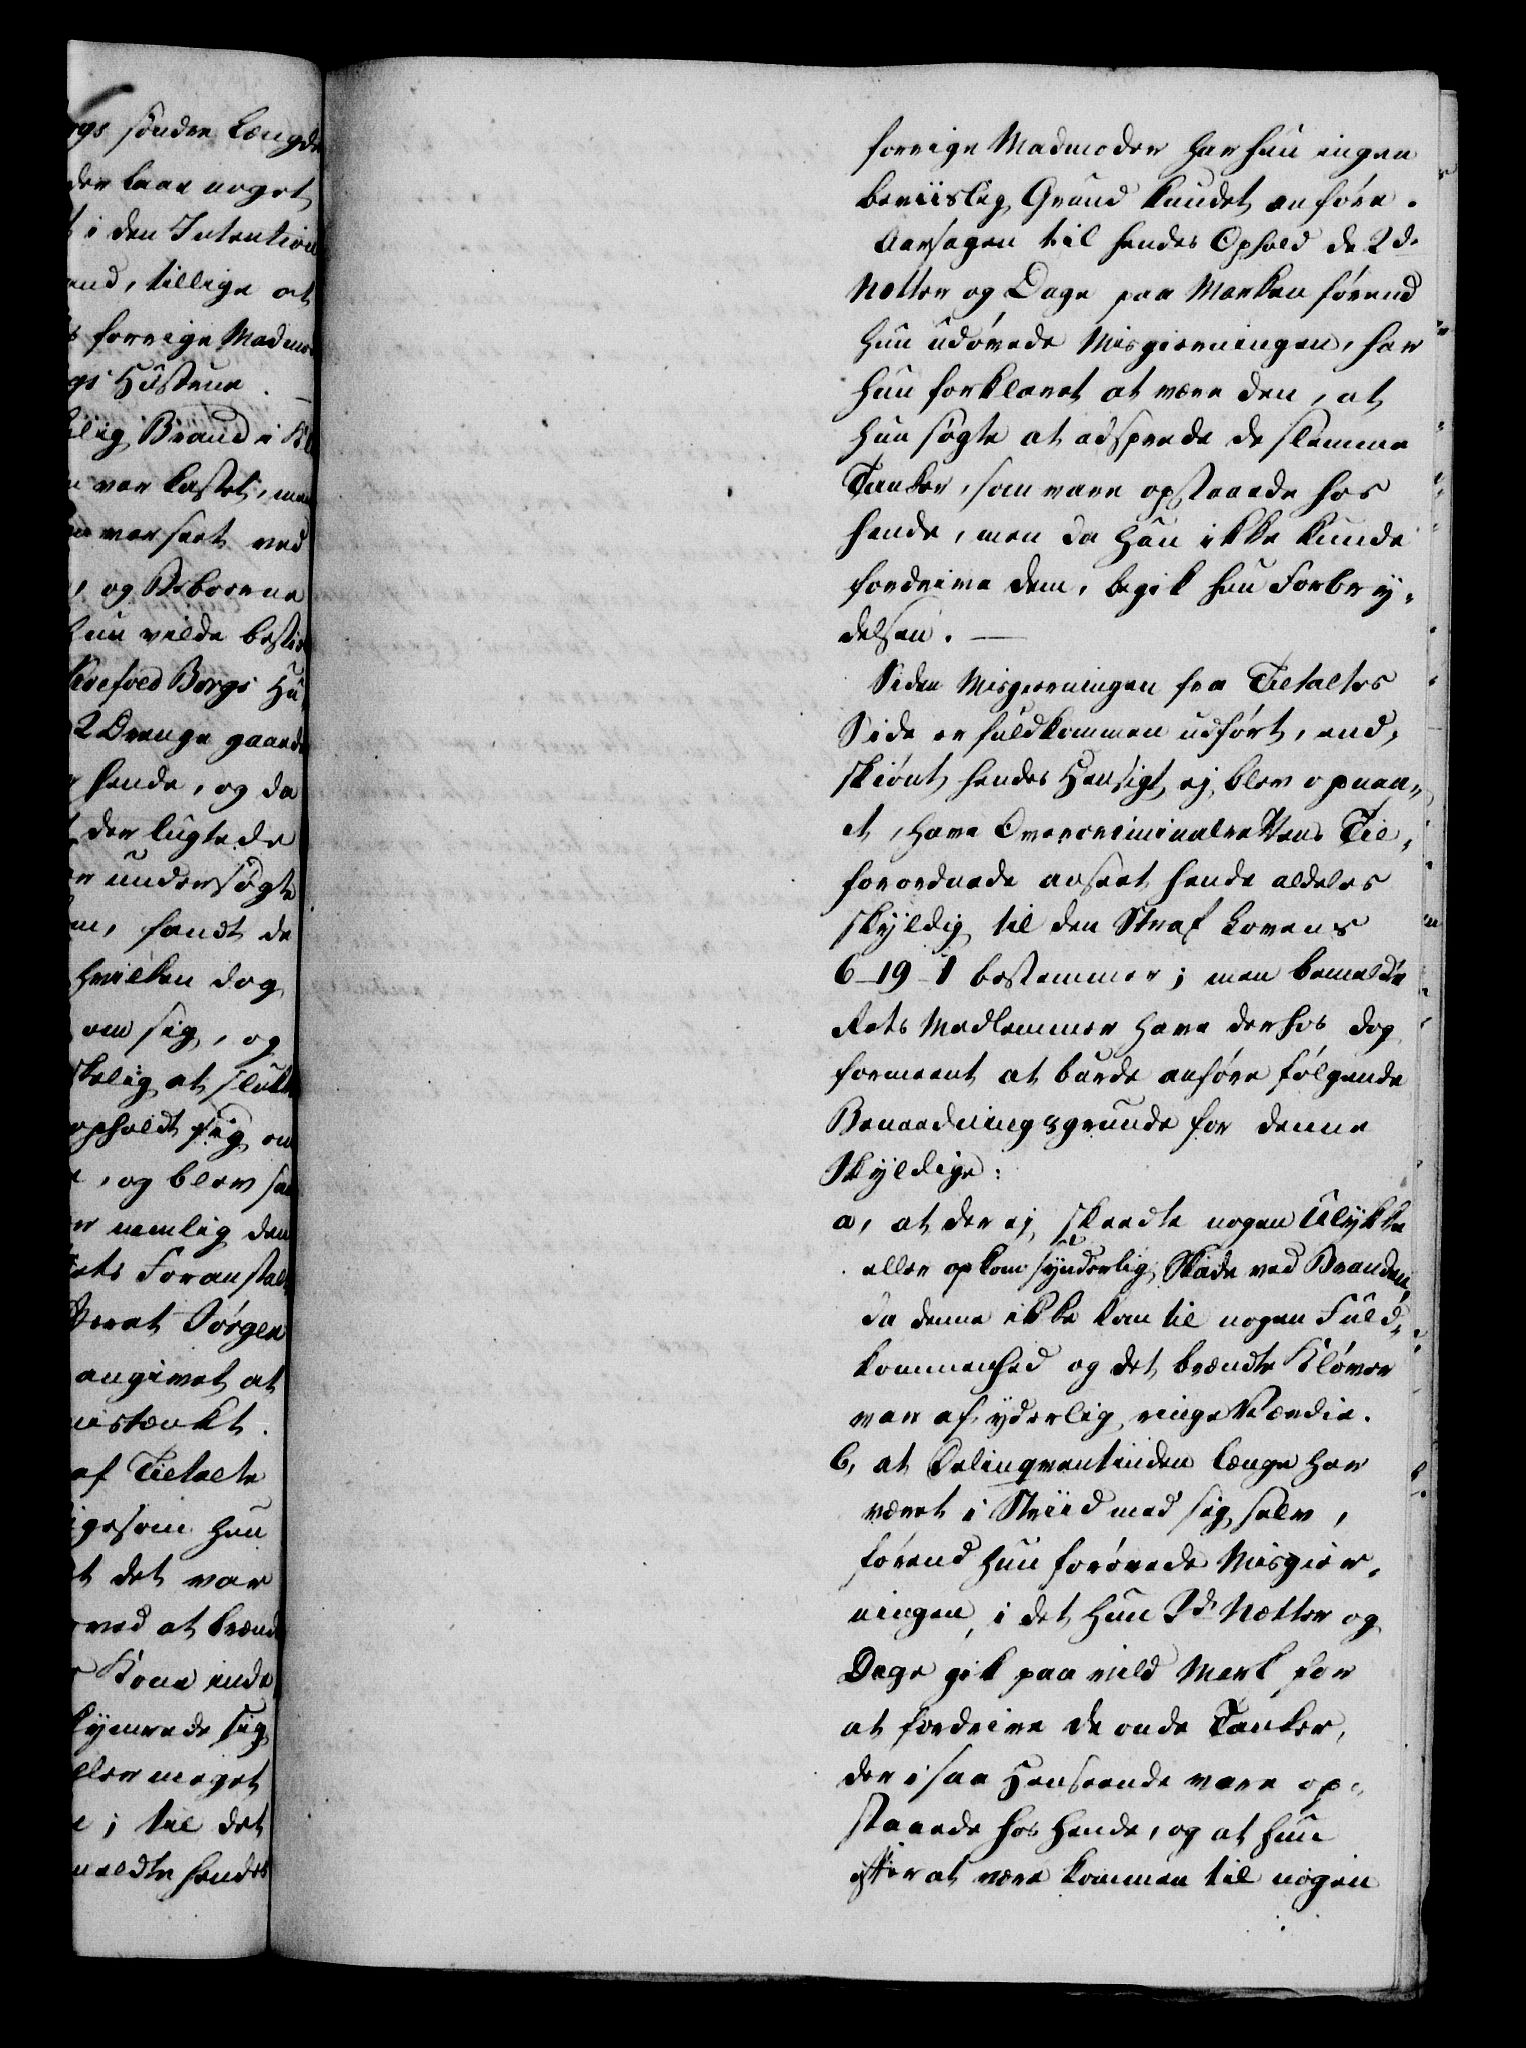 gs søndre Længde
der laae noget
i den Intention
and, tillige at
forrige Madmo
gs Hustrue. —
lig Brand i Kl
var kastet, men
var seet ved
, og Beboerne
Hun vilde bestie
Koefoed Borgs Hu
2 Drenge gaaede
hende, og da
der lugtede
undersøgte
fandt de
hvilken dog
om sig, og
kelig at slukke
opholdt sig en
, og blev saa
nemlig den
ets Foranstalt
Jørgen
angivet at
mistænkt.
af Tiltalte
igesom Hun
t det var
ved at brænde
Kone inde
kymrede sig
eller meget
; til det
meldte hendes
forrige Madmoder har hun ingen
beviislig Grund kundet anføre.
Aarsagen til hendes Ophold de 2de
Netter og Dage paa Marken førend
Hun udøvede Misgierningen, har
hun forklaret at være den, at
Hun søgte at adsprede de slemme
Tanker, som vare opstaaede hos
hende, men da Hun ikke kunde
fordrive dem, begik hun Forbry-
delsen. —
Siden Misgierningen fra Tiltaltes
Side er fuldkommen udført, end-
skiønt hendes Hensigt ej blev opnaa-
et, have Overcriminalrettens Til-
forordnede anseet hende aldeles
skyldig til den Straf Lovens
6-19-1 bestemmer; men bemeldte
Rets Medlemmer have derhos dog
formeent at burde anføre følgende
Benaadningsgrunde for denne
Skyldige:
a, at der ej skeedte nogen Ulykke
eller opkom synderlig Skade ved Branden,
da denne ikke kom til nogen Fuld-
kommenhed og det brændte Kløver
var af yderlig ringe Værdie.
b, at Delinqventinden længe har
været i Striid med sig selv,
førend Hun forøvede Misgier-
ningen, i det Hun 2de Nætter og
Dage gik paa vild Mark for
at fordrive de onde Tanker,
der i saa Henseende vare op-
staaede hos Hende, og at hun
efter at være kommen til nogen